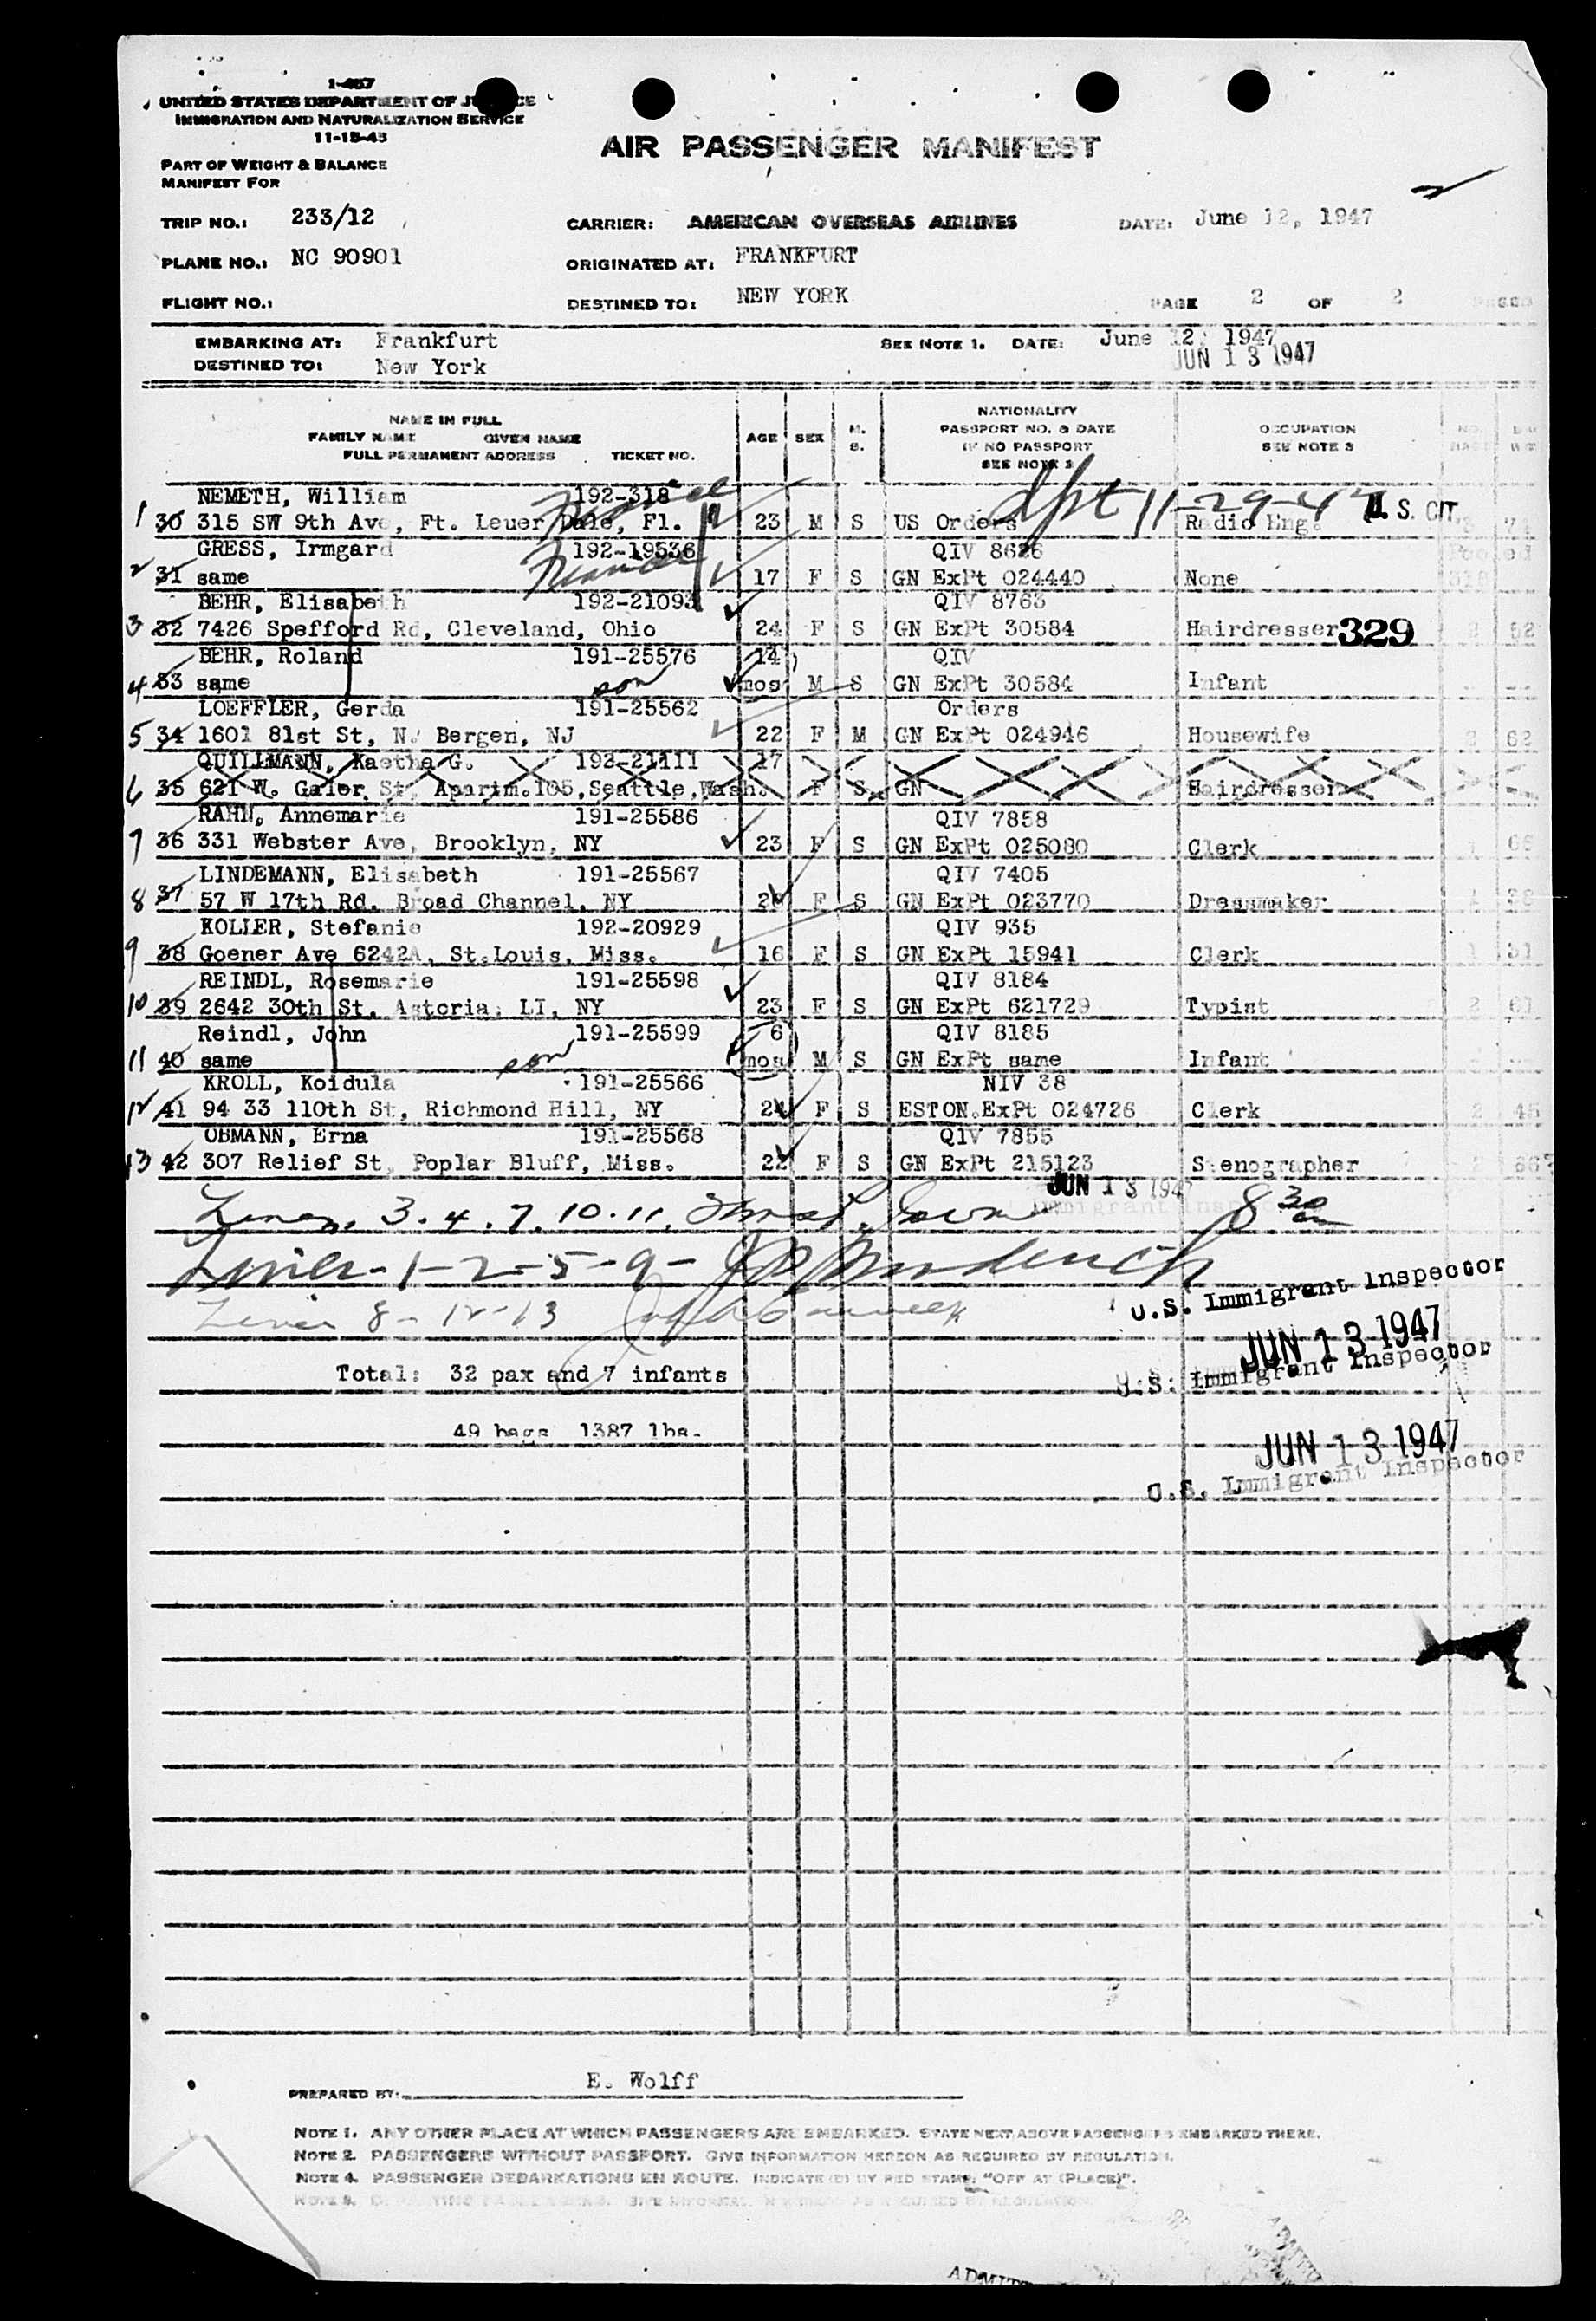 1-457
UNITED STATES DEPARTMENT OF JUSTICE
IMMIGRATION AND NATURALIZATION SERVICE
11-15-45
AIR PASSENGER MANIFEST
PART OF WEIGHT & BALANCE
MANIFEST FOR
TRIP NO.: 233/12 CARRIER: AMERICAN OVERSEAS AIRLINES DATE: June 12, 1947
PLANE NO.: NC 90901 ORIGINATED AT: FRANKFURT
FLIGHT NO.: DESTINED TO: NEW YORK PAGE 2 OF 2
EMBARKING AT: Frankfurt SEE NOTE 1. DATE: June 12, 1947
DESTINED TO: New York JUN 13 1947
NAME IN FULL
FAMILY NAME GIVEN NAME
FULL PERMANENT ADDRESS TICKET NO.
AGE SEX M. S.
NATIONALITY
PASSPORT NO. & DATE
IF NO PASSPORT
SEE NOTE 2
OCCUPATION
SEE NOTE 3
NEMETH, William 192-318
1 30 315 SW 9th Ave, Ft. Leuer Dale, Fl. 23 M S US Orders dpt 11-29-47 Radio Eng. U.S. CIT.
GRESS, Irmgard 192-19536 QIV 8626 Pooled
2 31 same Fiancee 17 F S GN ExPt 024440 None
BEHR, Elisabeth 192-21093 QIV 8763
3 32 7426 Spefford Rd, Cleveland, Ohio 24 F S GN ExPt 30584 Hairdresser 329 2 52
BEHR, Roland 191-25576 14 QIV
4 33 same son mos M S GN ExPt 30584 Infant
LOEFFLER, Gerda 191-25562 Orders
5 34 1601 81st St, N. Bergen, NJ 22 F M GN ExPt 024946 Housewife 2 62
QUILLMANN, Kaetha G. 192-21111 17
6 35 621 W. Galer St, Apartm.105, Seattle, Wash. F S GN Hairdresser
RAHN, Annemarie 191-25586 QIV 7858
7 36 331 Webster Ave, Brooklyn, NY 23 F S GN ExPt 025080 Clerk
LINDEMANN, Elisabeth 191-25567 QIV 7405
8 37 57 W 17th Rd. Broad Channel, NY F S GN ExPt 023770 Dressmaker
KOLLER, Stefanie 192-20929 QIV 935
9 38 Goener Ave 6242A, St.Louis, Miss. 16 F S GN ExPt 15941 Clerk 1 31
REINDL, Rosemarie 191-25598 QIV 8184
10 39 2642 30th St. Astoria, LI, NY 23 F S GN ExPt 621729 Typist 2 61
Reindl, John 191-25599 6 QIV 8185
11 40 same son mos M S GN ExPt same Infant
KROLL, Koidula 191-25566 NIV 38
12 41 94 33 110th St, Richmond Hill, NY F S ESTON.ExPt 024726 Clerk 2 45
OBMANN, Erna 191-25568 QIV 7855
13 42 307 Relief St, Poplar Bluff, Miss. 22 F S GN ExPt 215123 Stenographer
JUN 13 1947
Lines 3.4.7.10.11. 8 30 am
Immigrant Inspector
Lines-1-2-5-9-
U.S. Immigrant Inspector
Lines 8-12-13
JUN 13 1947
U.S. Immigrant Inspector
Total: 32 pax and 7 infants
49 bags 1387 lbs.
JUN 13 1947
U.S. Immigrant Inspector
PREPARED BY: E. Wolff
NOTE 1. ANY OTHER PLACE AT WHICH PASSENGERS ARE EMBARKED. STATE NEXT ABOVE PASSENGERS EMBARKED THERE.
NOTE 2. PASSENGERS WITHOUT PASSPORT. GIVE INFORMATION HEREON AS REQUIRED BY REGULATION.
NOTE 4. PASSENGER DEBARKATIONS EN ROUTE. INDICATE (D) BY RED STAMP: "OFF AT (PLACE)".